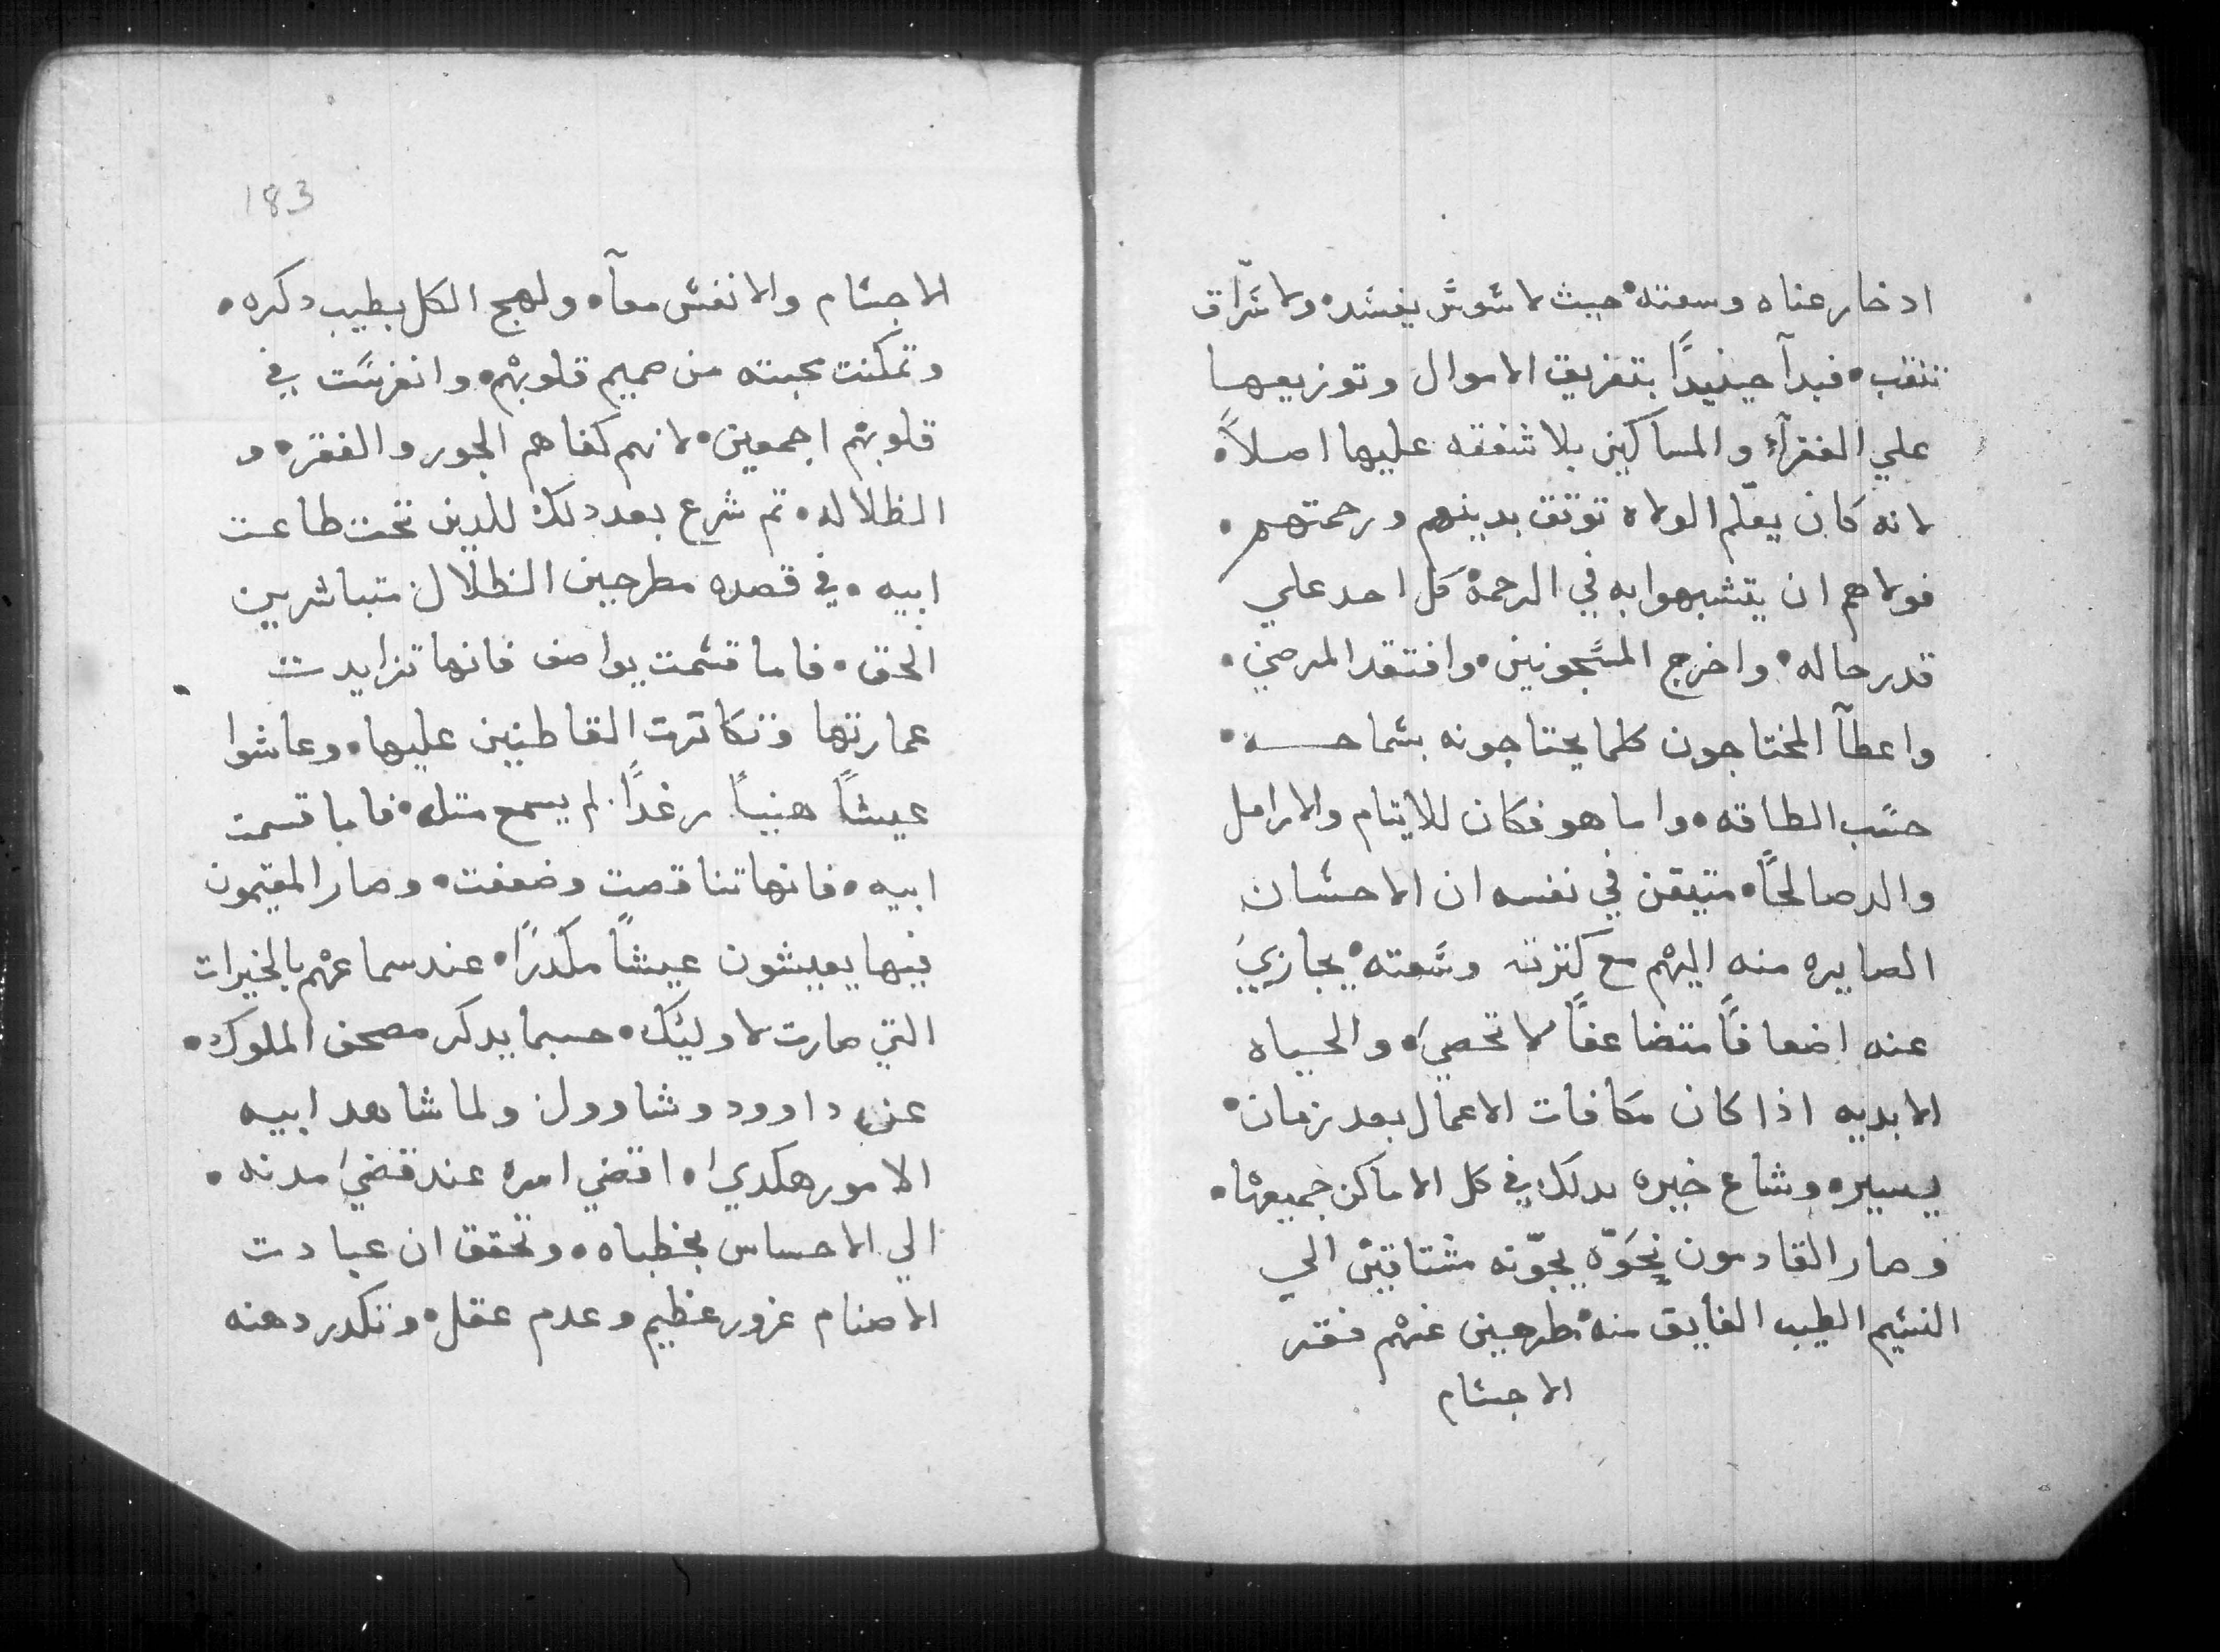 ادخار عناه وسعته حيث لا سوس يفسد ولا سراق
تنقب • فبدآ حينيدًا بتفريق الاموال وتوزيعها
علي الفقرآء والمساكين بلا شفقه عليها اصلاً •
لانه كان يعلم الولاه توتق بدينهم ورحمتهم •
فولاهم ان يتشبهوا به في الرحمة كل احد علي
قدر حاله • واخرج المسجونين • وافتقد المرضي •
واعطآ المحتاجون كلما يحتاجونه بسماحه •
حسب الطاقه • واما هو فكان للايتام والارامل
والد صالحًا • متيقن في نفسه ان الاحسان
الصايره منه اليهم مع كترته وسعته • يجازيَ
عنه اضعافًا متضاعفًا لا تحصيَ • والحياه
الابديه اذا كان مكافات الاعمال بعد زمان •
يسيره • وشاع خبره بدلك في كل الاماكن جميعها •
وصار القادمون نحوّه يجوّنه مشتاقين الي
النسيم الطيب الفايق منه • مطرحين عنهم فقر
الاجسام
183
الاجسام والانفس معآ • ولهج الكل بطيب دكره •
وتمكنت محبته من صميم قلوبهم • وانغرست في
قلوبهم اجمعين • لانهم كفاهم الجور والفقر • و
الظلاله • تم شرع بعد دلك للدين تحت طاعت
ابيه • في قصده مطرحين الظلال متباشرين
الحق • فاما قسمت يواصف فانها تزايدت
عمارتها وتكاترت القاطنين عليها • وعاشوا
عيشًا هنيًا رغدًا لم يسمح متله • فاما قسمت
ابيه • فانها تناقصت وضعفت • وصار المقيمون
فيها يعيشون عيشًا مكدرًا • عند سماعهم بالخيرات
التي صارت لاوليك • حسبما يدكر مصحف الملوك •
عن داوود وشاوول ولما شاهد ابيه
الامور هكديَ • اقضي اميره عند قضيَ مدته •
الي الاحساس بخطياه • وتحقق ان عبادت
الاصنام غرور عظيم وعدم عقل • وتكدر دهنه